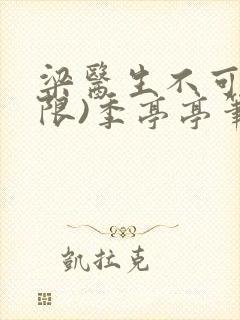 梁醫生不可
限)季亭亭筆
凱拉克